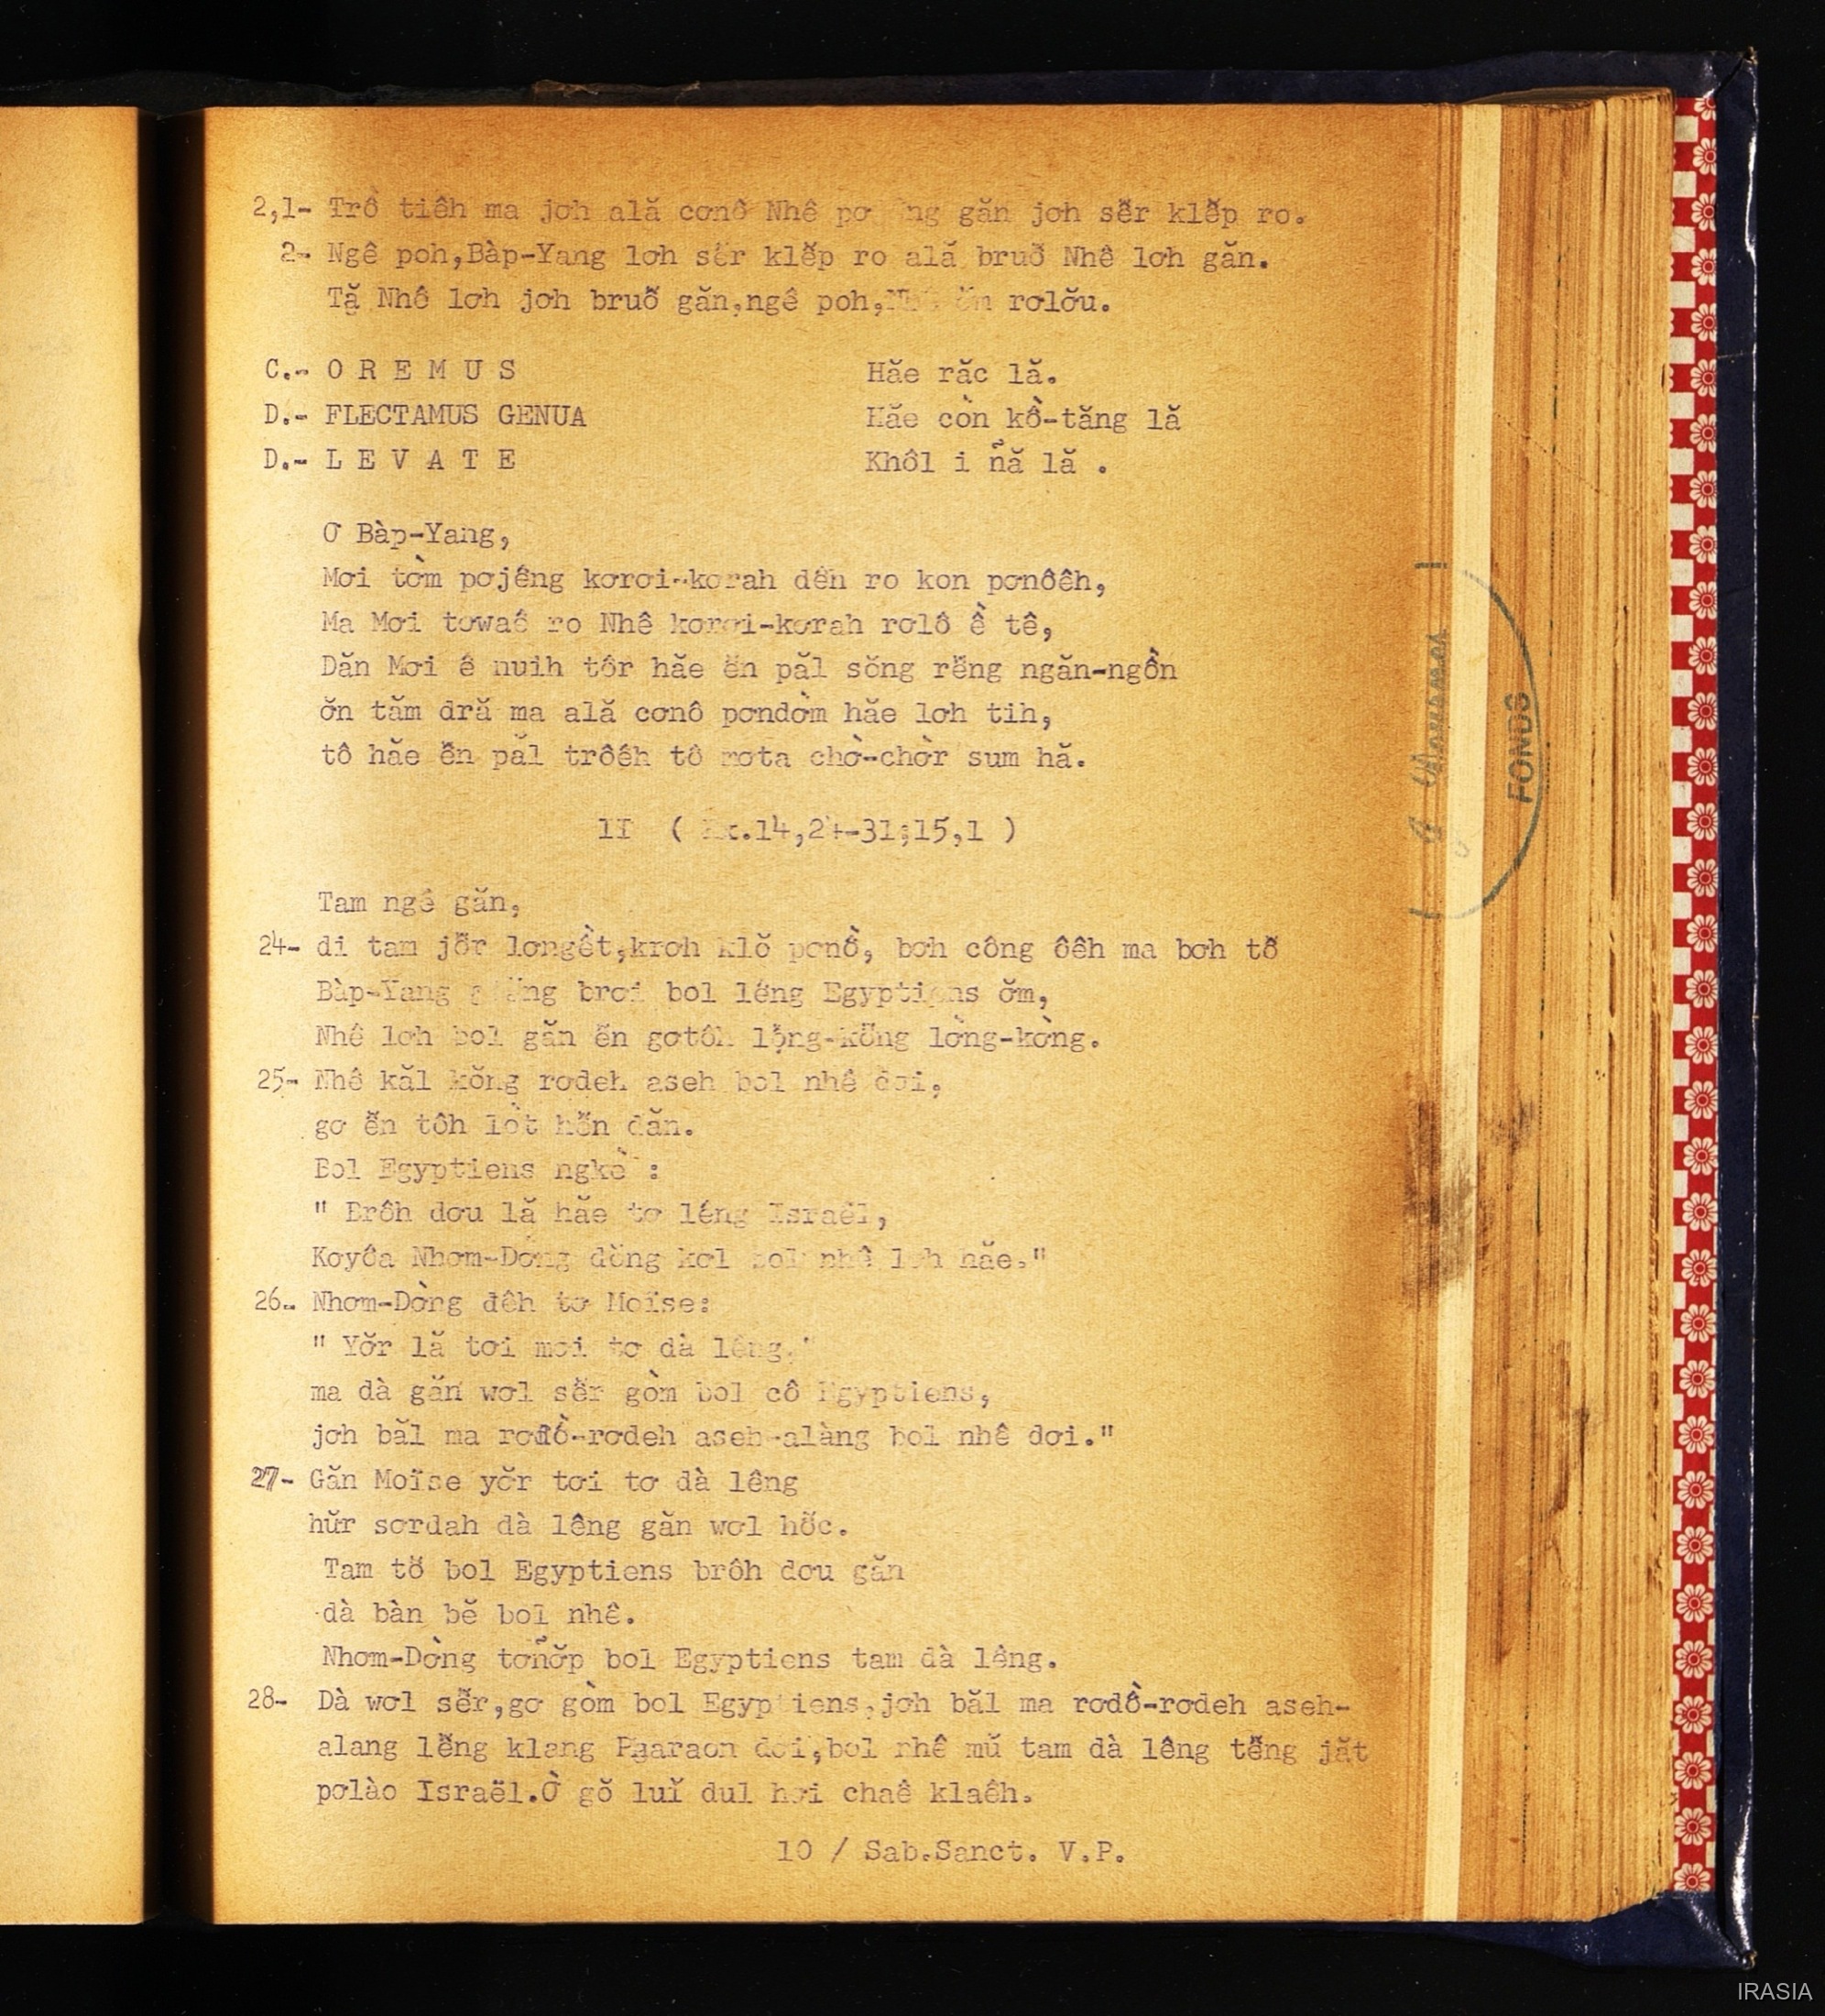 2,1- Trồ tiêh ma jơh ală cơnô Nhê găn jơh sĕr klĕp ro.
2- Ngê poh,Bàp-Yang lơh sĕr klĕp ro ală bruŏ Nhê lơh găn.
Tă Nhê lơh jơh bruŏ găn,ngê poh, rơlŏu.
C.- O R E M U S Hăe răc lă.
D.- FLECTAMUS GENUA Hăe còn kồ-tăng lă
D.- L E V A T E Khôl i n̉ă lă .
Ơ Bàp-Yang,
Mơi tờm pơjêng kơrơi-kơrah dê̆n ro kon pơnôêh,
Ma Mơi tơwaê ro Nhê kơrơi-kơrah rơlô ề tê,
Dăn Mơi ê nuih tôr hăe ĕn păl sŏng rĕng ngăn-ngồn
ơ̆n tăm dră ma ală cơnô pơndờm hăe lơh tih,
tô hăe ĕn păl trôêh tô rơta chờ-chờr sum hă.
11 ( Ex.14,24-31;15,1 )
Tam ngê găn,
24- di tam jŏr lơngềt,krơh klŏ pơnồ, bơh công ôêh ma bơh tŏ
Bàp-Yang brơi bol lêng Egyptiens ơ̆m,
Nhê lơh bol găn ĕn gơtôh lộng-kŏng lờng-kờng.
25- Nhê kăl kŏng rơdeh aseh bol nhê dơi,
gơ ĕn tôh lòt hĕn dăn.
Bol Egyptiens ngkề :
" Brôh dơu lă hăe tơ lêng Israël,
Kơyôa Nhơm-Dờng dŏng kơl bol nhê lơh hăe."
26- Nhơm-Dờng đêh tơ Moïse:
" Yơ̆r lă tơi mơi tơ dà lêng,
ma dà găn wơl sĕr gòm bol cô Egyptiens,
jơh băl ma rơdồ-rơdeh aseh-alàng bol nhê dơi."
27- Găn Moïse yơ̆r tơi tơ dà lêng
hŭr sơrdah dà lêng găn wơl hŏc.
Tam tŏ bol Egyptiens brôh dơu găn
dà bàn bĕ bol nhê.
Nhơm-Dờng tơn̉ơ̆p bol Egyptiens tam dà lêng.
28- Dà wơl sĕr,gơ gòm bol Egyptiens,jơh băl ma rơdồ-rơdeh aseh-
alang lĕng klang Pharaon dơi,bol nhê mŭ tam dà lêng tĕng jăt
pơlào Israël.Ờ gŏ luĭ dul hơi chaê klaêh.
10 / Sab.Sanct. V.P.
FONDS
IRASIA